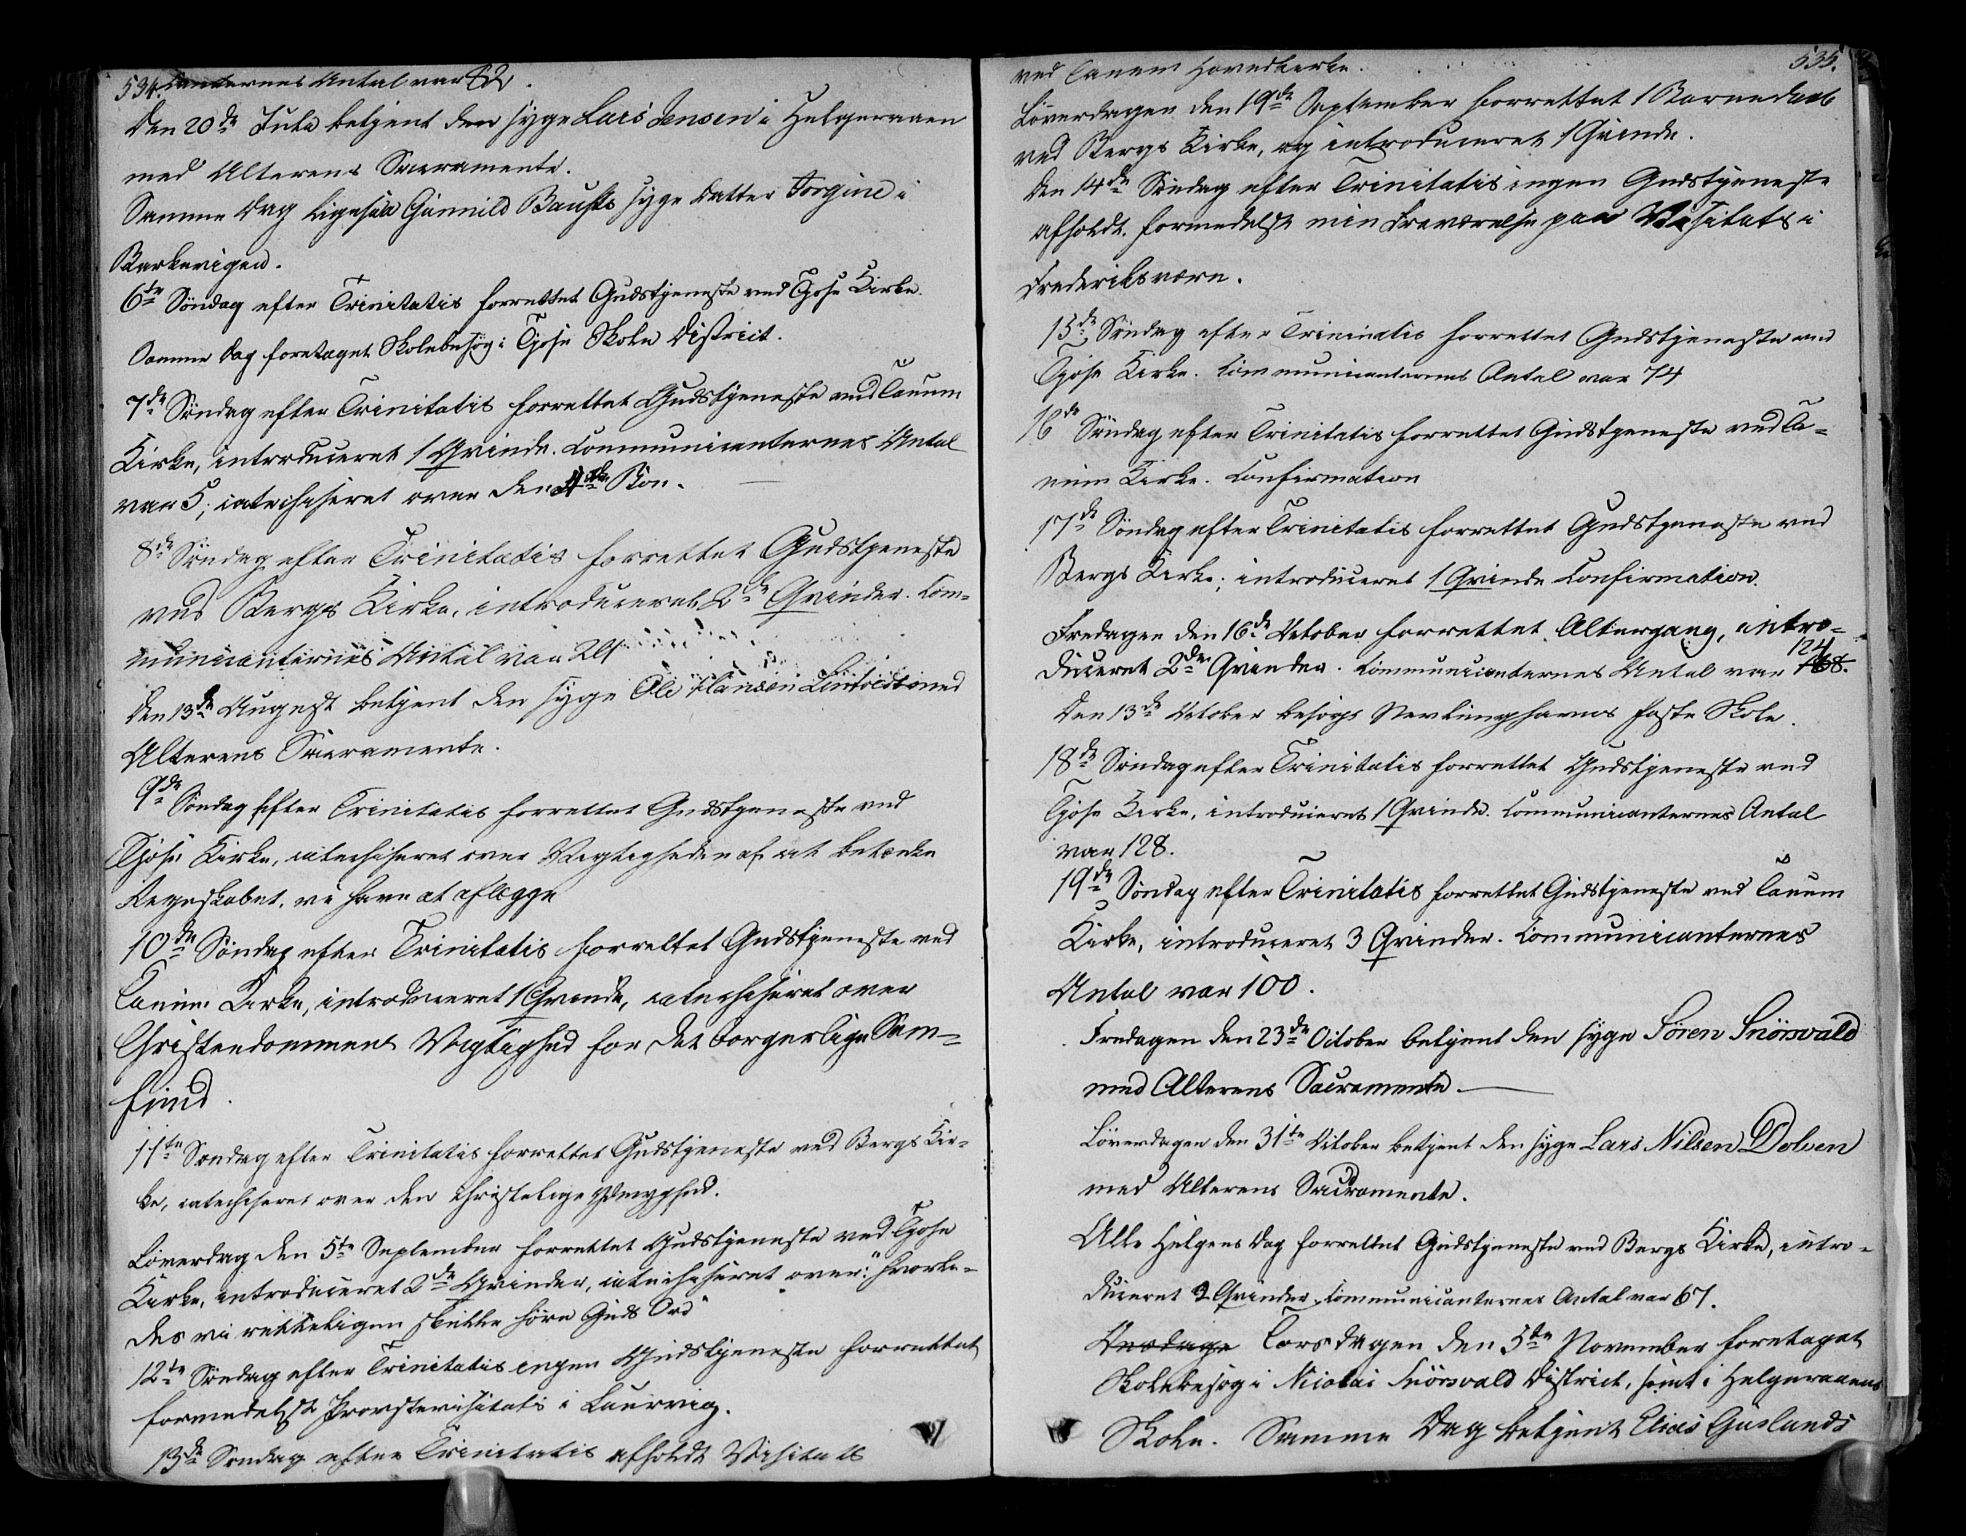 534. canternes Antal var 82.
Den 20de Julii betjent den syge Lars Jensen i Helgeraaen
med Alterens Sacramente.
Samme Dag ligesaa Gunnild Bausks syge Datter Torgine i
Barkevigen.
6te Søndag efter Trinitatis forrettet Gudstjeneste ved Tjose Kirke.
Samme Dag foretaget Skolebesøg i Tjose Skole District.
7de Søndag efter Trinitatis forrettet Gudstjeneste ved Tanum
Kirke, introduceret 1 Qvinde. Communicanternes Antal
var 5; catechiseret over den 4de Bøn.
8de Søndag efter Trinitatis forrettet Gudstjeneste
ved Bergs Kirke, introduceret 2de Qvinder. Com-
municanternes Antal var 24
Den 13de August betjent den syge Ole Hansen med
Alterens Sacramente.
9de Søndag efter Trinitatis forrettet Gudstjeneste ved
Tjose Kirke, catechiseret over Vigtigheden af at betænke
Regnskabet, vi have at aflægge
10de Søndag efter Trinitatis forrettet Gudstjeneste ved
Tanum Kirke, introduceret 1 Qvinde, catechiseret over
Christendommens Vigtighed for det borgerlige Sam-
fund.
11te Søndag efter Trinitatis forrettet Gudstjeneste ved Bergs Kir-
ke, catechiseret over den christelige Ydmyghed.
Løverdag den 5te September forrettet Gudstjeneste ved Tjose
Kirke, introduceret 2de Qvinder, catechiseret over: "hvorle-
des vi retteligen skulle høre Guds Ord"
12te Søndag efter Trinitatis ingen Gudstjeneste forrettet
formedelst Provstevisitats i Laurvig.
13de Søndag efter Trinitatis afholdt Visitats
535.
ved Tanum Hovedkirke.
Løverdagen den 19de September forrettet 1 Barnedaab
ved Bergs Kirke, og introduceret 1 Qvinde.
Den 14de Søndag efter Trinitatis ingen Gudstjeneste
afholdt formedelst min Fraværelse paa Visitats i
Frederiksværn.
15de Søndag efter Trinitatis forrettet Gudstjeneste ved
Tjose Kirke. Communicanternes Antal var 74
16de Søndag efter Trinitatis forrettet Gudstjeneste ved Ta-
num Kirke. Confirmation
17de Søndag efter Trinitatis forrettet Gudstjeneste ved
Bergs Kirke; introduceret 1 Qvinde Confirmation.
Fredagen den 16de October forrettet Altergang, intro-
duceret 2de Qvinder. Communicanternes Antal var 124
Den 13de October besøgt Nevlunghavns faste Skole.
18de Søndag efter Trinitatis forrettet Gudstjeneste ved
Tjose Kirke, introduceret 1 Qvinde. Communicanternes Antal
var 128.
19de Søndag efter Trinitatis forrettet Gudstjeneste ved Tanum
Kirke, introduceret 3 Qvinder. Communicanternes
Antal var 100.
Fredagen den 23de October betjent den syge Søren Snørsvald
med Alterens Sacramente
Løverdagen den 31te October betjent den syge Lars Nilsen Dolven
med Alterens Sacramente.
Alle Helgens Dag forrettet Gudstjeneste ved Bergs Kirke, intro-
duceret 2 Qvinder, Communicanternes Antal var 67.
Torsdagen den 5te November foretaget
Skolebesøg i Nicolai Snörsvald District, samt i Helgeraaens
Skole. Samme Dag betjent Elias Guslands